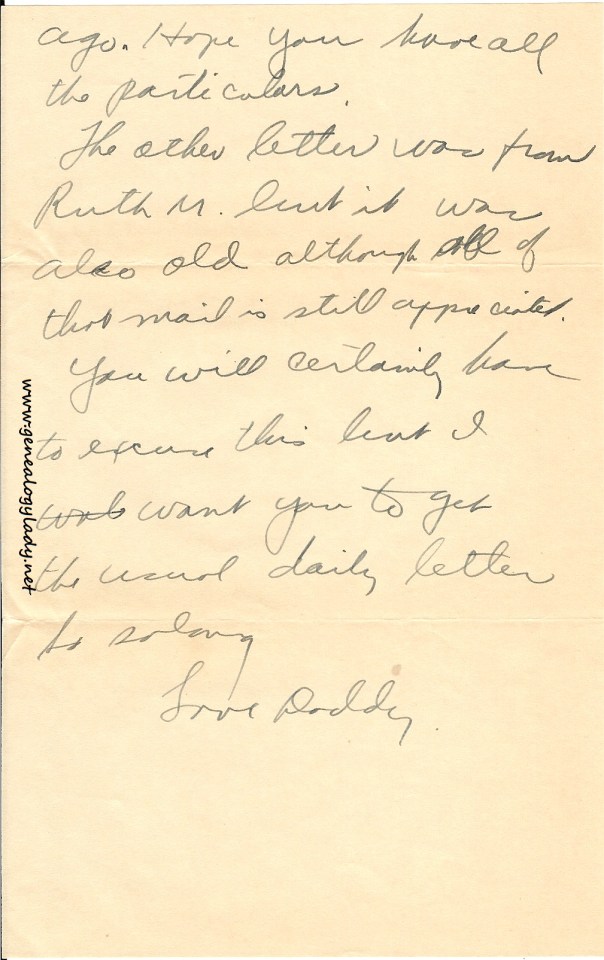 ago. Hope you have all
the particulars.
The other letter was from
Ruth M. but it was
also old although all of
that mail is still appreciated.
You will certainly have
to excuse this but I
want you to get
the usual daily letter
so solong
Love Daddy.
www.genealogylady.net